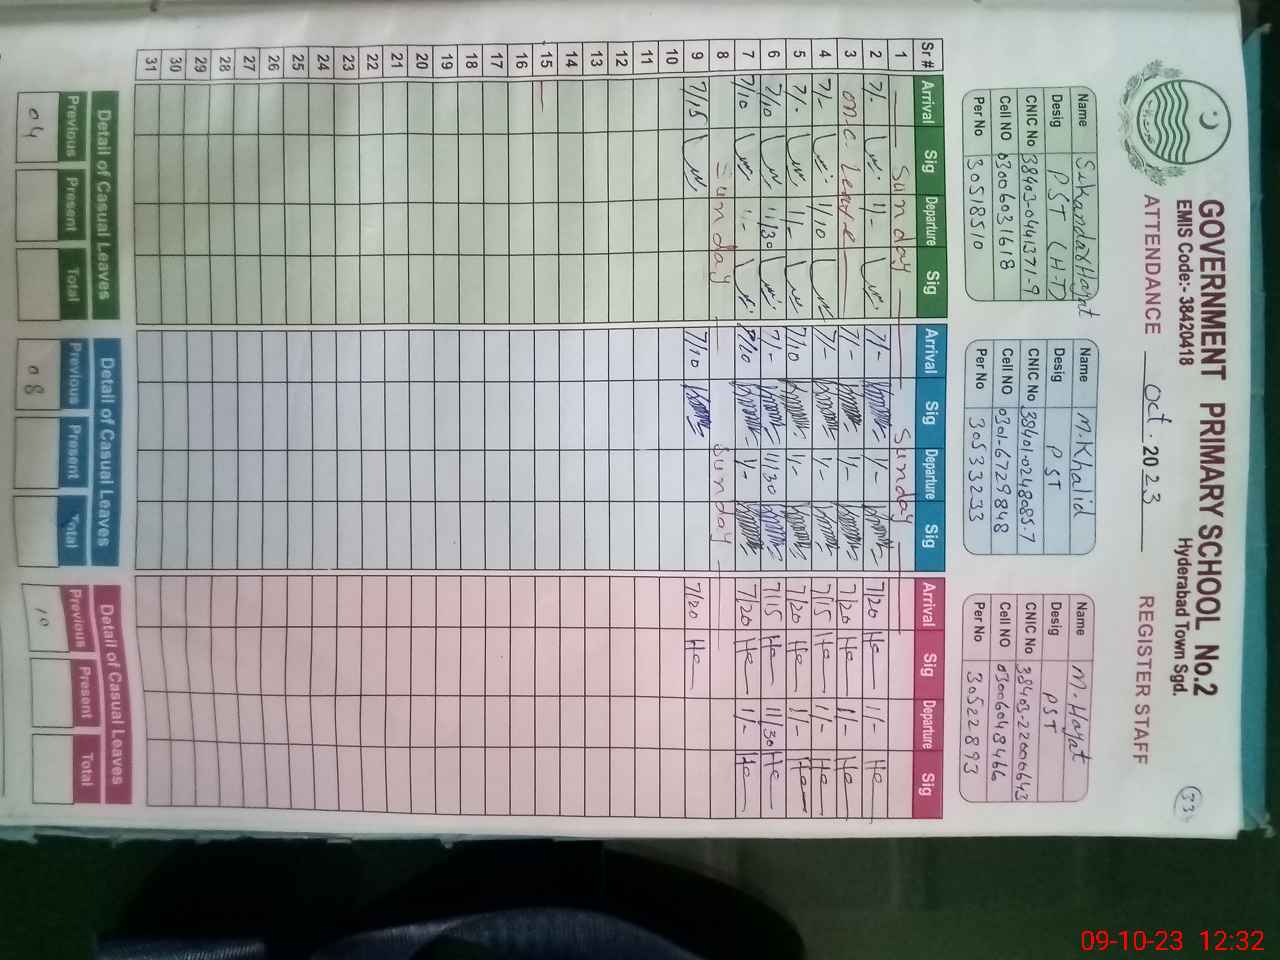 GOVERNMENT PRIMARY SCHOOL No.2
EMIS Code:- 38420418 Hyderabad Town Sgd.
ATTENDANCE Oct. 2023 REGISTER STAFF
Name Sikandar Hayat
Desig PST (H-T)
CNIC No 38403-0441371-9
Cell NO 03006031618
Per No 30518510
Name M. Khalid
Desig PST
CNIC No 38401-0248085-7
Cell NO 0301-6729848
Per No 30533233
Name M. Hayat
Desig PST
CNIC No 38403-22000643
Cell NO 03006048466
Per No 30522893
Sr # Arrival Sig Departure Sig Arrival Sig Departure Sig Arrival Sig Departure Sig
1 Sunday Sunday
2 7/- 1/- 7/- 1/- 7/20 Ha 1/- Ha
3 on c. Leave 7/- 1/- 7/20 Ha 1/- Ha
4 7/- 1/10 7/- 1/- 7/15 Ha 1/- Ha
5 7/- 1/- 7/10 1/- 7/20 Ha 1/- Ha
6 7/10 11/30 7/- 11/30 7/15 Ha 11/30 Ha
7 7/10 1/- 7/10 1/- 7/20 Ha 1/- Ha
8 Sunday Sunday
9 7/15 7/10 7/20 Ha
10
11
12
13
14
15
16
17
18
19
20
21
22
23
24
25
26
27
28
29
30
31
Detail of Casual Leaves
Previous Present Total
04
Detail of Casual Leaves
Previous Present Total
08
Detail of Casual Leaves
Previous Present Total
10
09-10-23 12:32